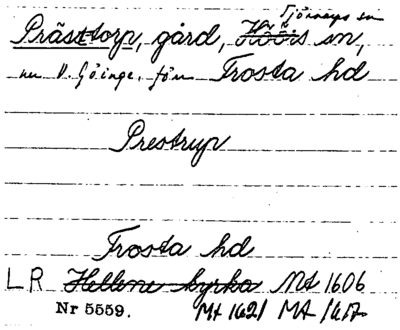 Tjörnarps sn
Prästtorp, gård, Höörs sn,
nu V. Göinge, förr Frosta hd
Prestrup
Frosta hd
LR Hellene kyrka Mt 1606
Nr 5559. Mt 1621 Mt 1617